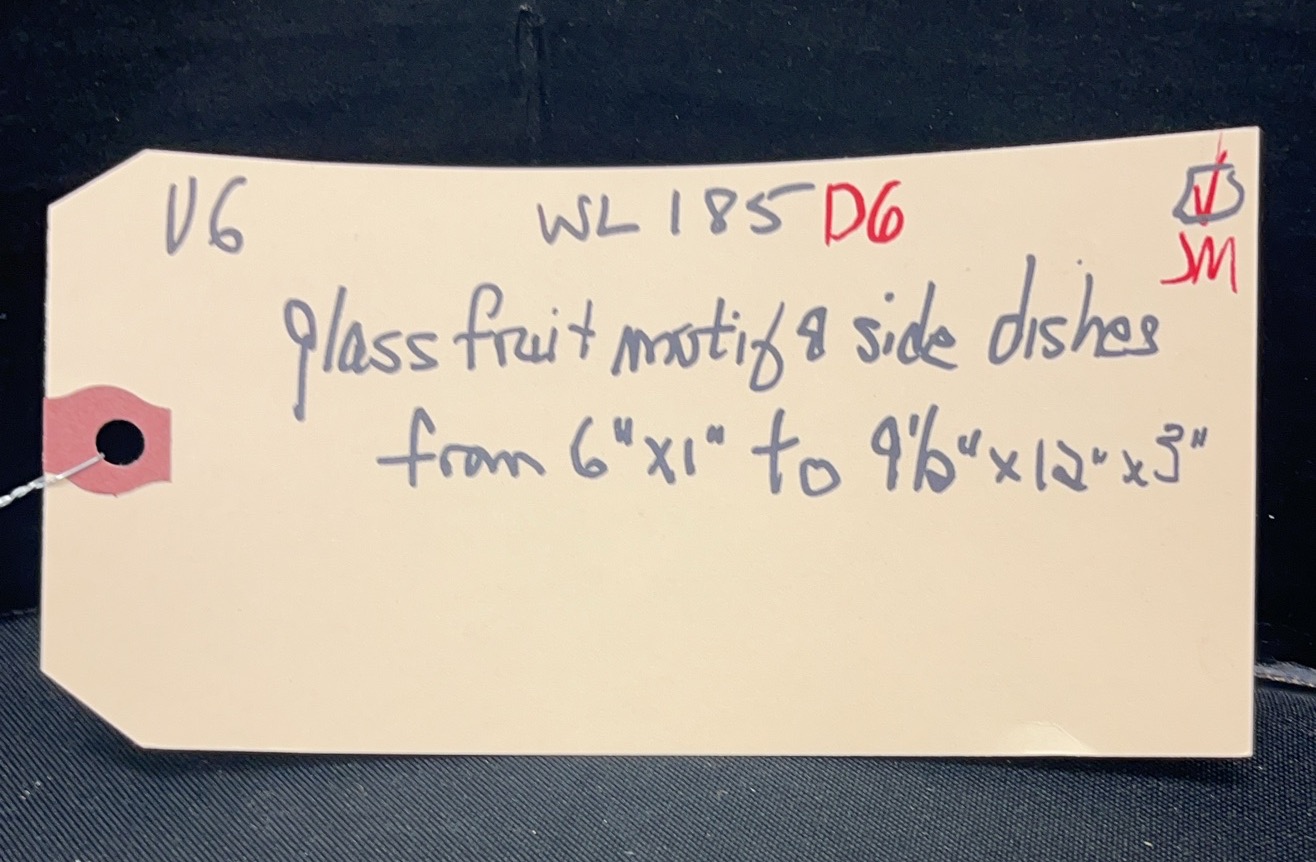 V6 WL 185 D6
JM
glass fruit motif 8 side dishes
from 6"x1" to 9½"x12"x3"